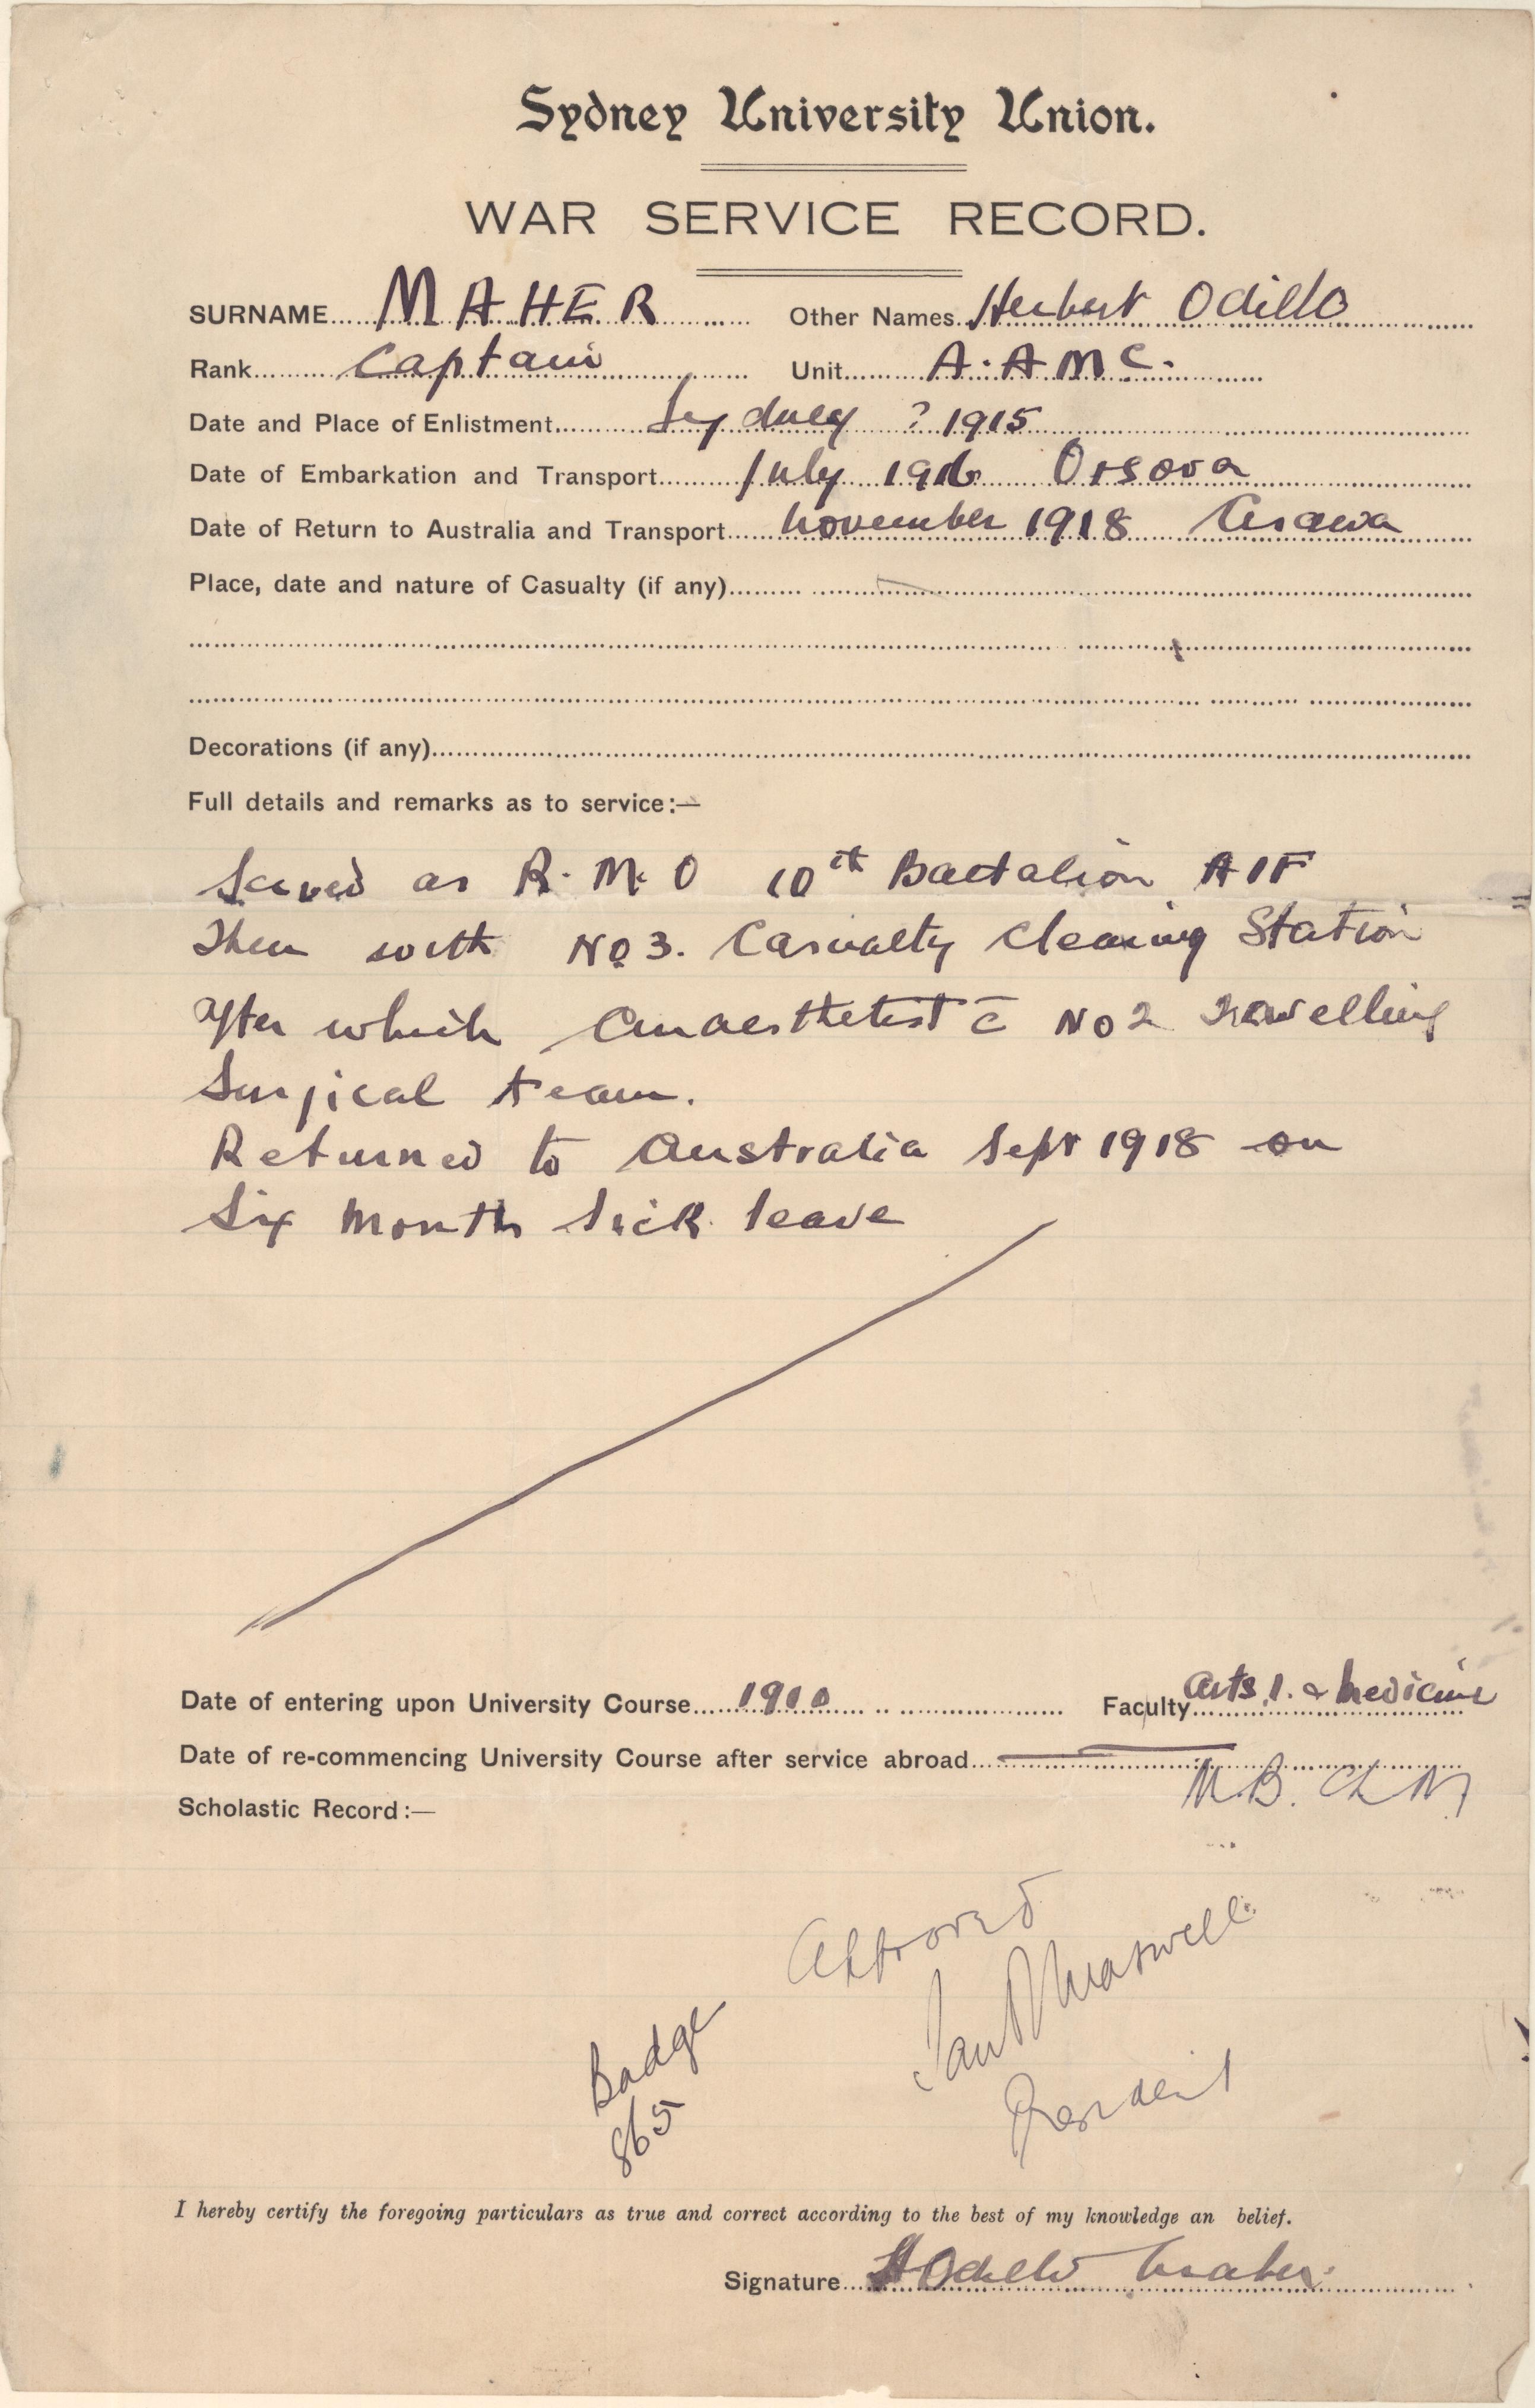 Sydney University Union.
WAR SERVICE RECORD.
SURNAME MAHER Other Names Herbert Odillo
Rank Captain Unit A.A.M.C.
Date and Place of Enlistment Sydney ? 1915
Date of Embarkation and Transport July 1916 Orsova
Date of Return to Australia and Transport November 1918
Place, date and nature of Casualty (if any)
Decorations (if any)
Full details and remarks as to service:—
Served as R.M.O 10th Battalion AIF
Then with No 3. Casualty Clearing Station
After which Anaesthetist c̄ No 2 Travelling
Surgical team.
Returned to Australia Sept 1918 on
Six Months Sick leave
Date of entering upon University Course 1910 Faculty Arts 1. & Medicine
Date of re-commencing University Course after service abroad
M.B. Ch M
Scholastic Record:—
Approved
Maxwell
President
Badge
865
I hereby certify the foregoing particulars as true and correct according to the best of my knowledge an belief.
Signature H Odillo Maher